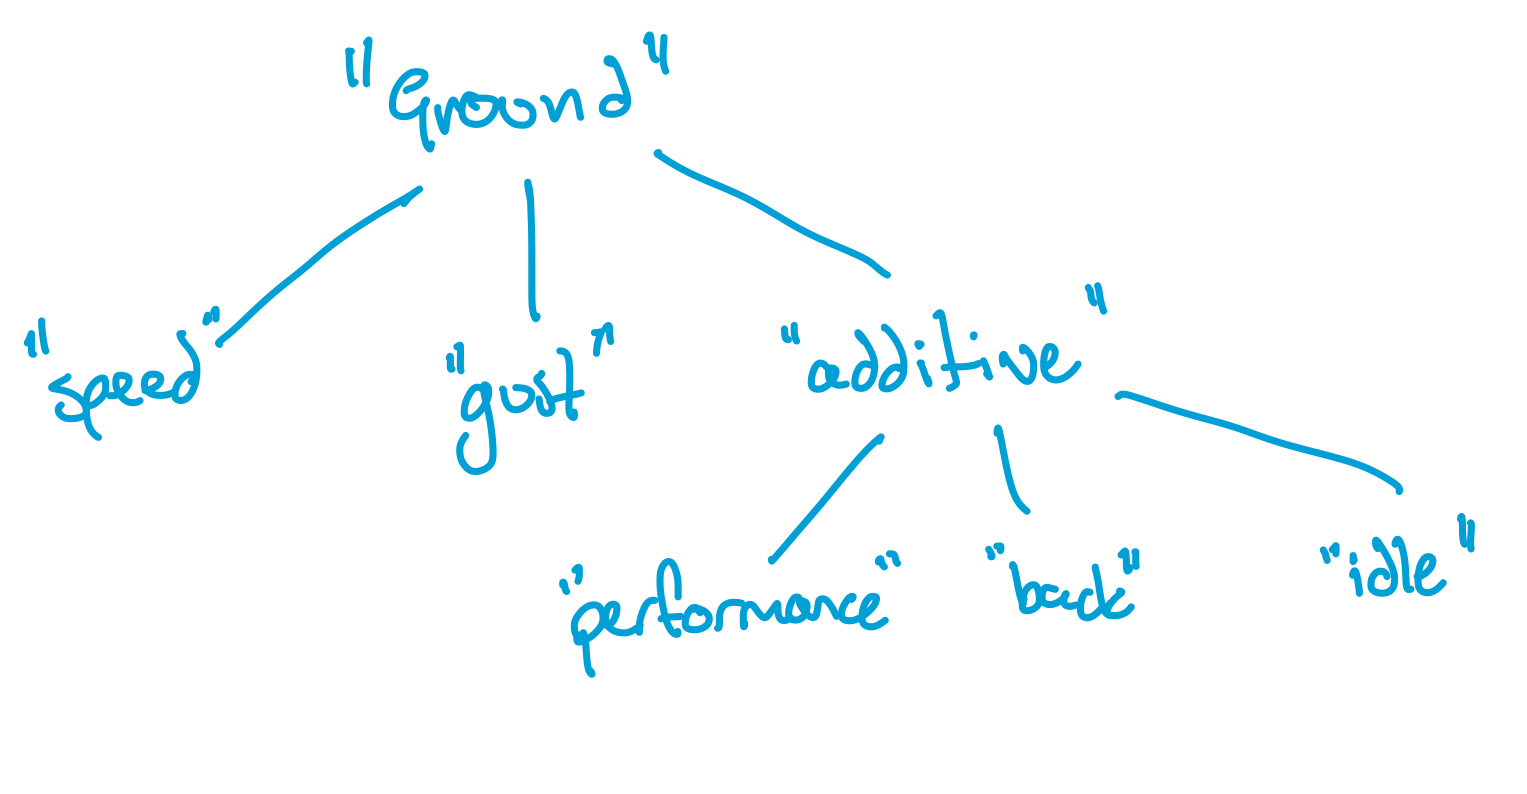 "Ground"
"speed" "gust" "additive"
"performance" "back" "idle"